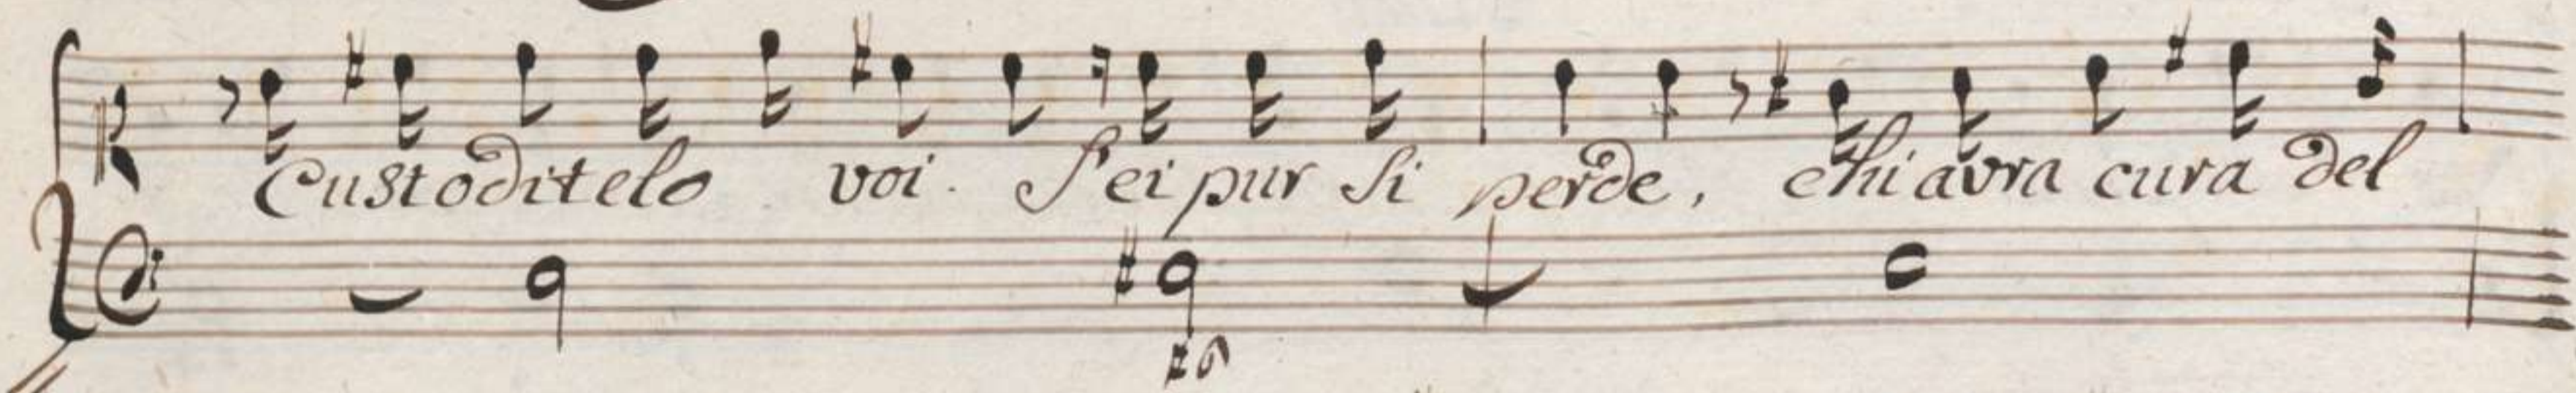 Custoditelo voi. S'ei pur si perde, chi avra cura del
#6